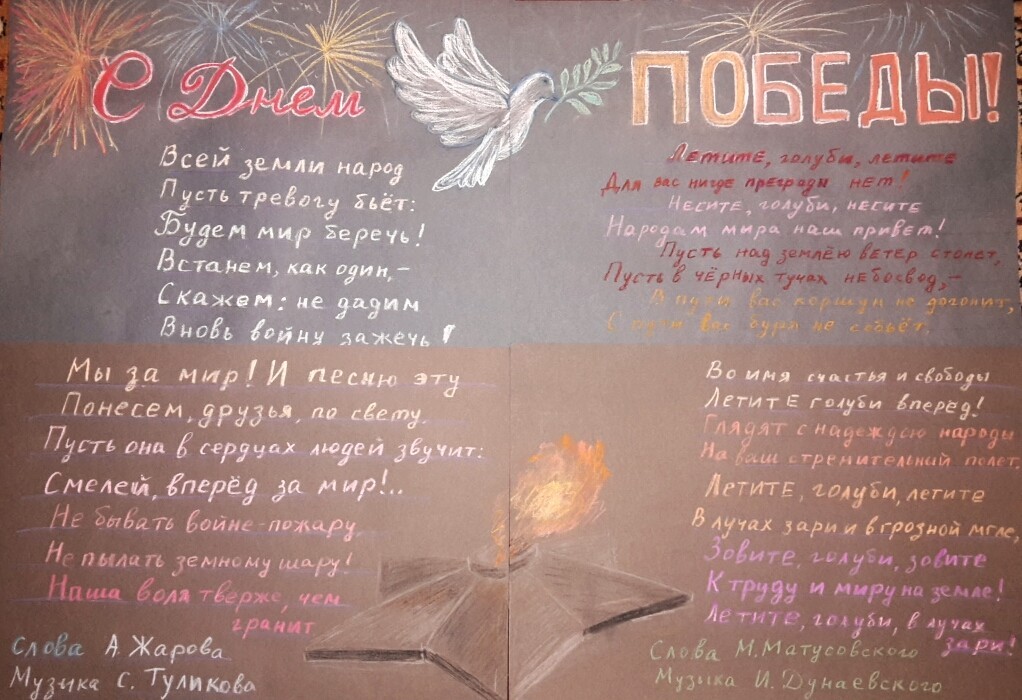 С Днем ПОБЕДЫ!
Всей земли народ
Пусть тревогу бьёт:
Будем мир беречь!
Встанем, как один,–
Скажем: не дадим
Вновь войну зажечь!
Мы за мир! И песню эту
Понесем, друзья, по свету.
Пусть она в сердцах людей звучит:
Смелей, вперёд за мир!..
Не бывать войне-пожару,
Не пылать земному шару!
Наша воля тверже, чем
гранит
Слова А. Жарова
Музыка С. Туликова
Летите, голуби, летите
Для вас нигде преграды нет!
Несите, голуби, несите
Народам мира наш привет!
Пусть над землёю ветер стонет,
Пусть в чёрных тучах небосвод,–
В пути вас коршун не догонит,
С пути вас буря не собьёт.
Во имя счастья и свободы
Летите голуби вперёд!
Глядят с надеждою народы
На ваш стремительный полет.
Летите, голуби, летите
В лучах зари и в грозной мгле,
Зовите, голуби, зовите
К труду и миру на земле!
Летите, голуби, в лучах
зари!
Слова М. Матусовского
Музыка И. Дунаевского